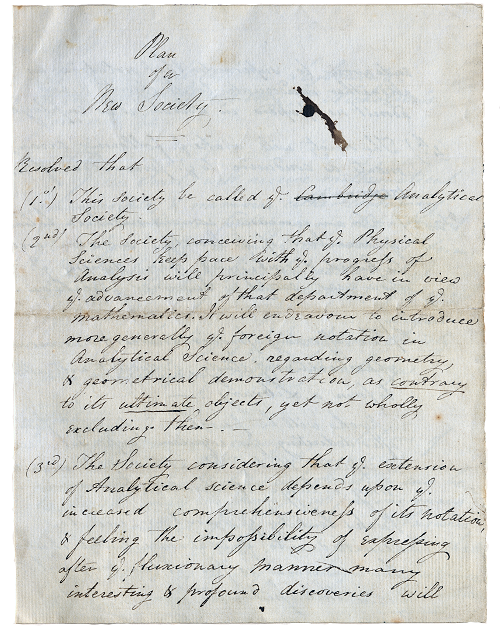 Plan
of a
New Society.
Resolved that
(1st) This society be called ye. Cambridge Analytical
Society.
(2nd) The Society, conceiving that ye. Physical
Sciences keep pace with ye. progress of
Analysis will principally have in view
ye. advancement of that department of ye.
mathematics. It will endeavour to introduce
more generally ye. foreign notation in
Analytical Science, regarding geometry,
& geometrical demonstration, as contrary
to its ultimate objects, yet not wholly
excluding them. —
(3rd) The Society considering that ye. extension
of Analytical science depends upon ye.
increased comprehensiveness of its notation,
& feeling the impossibility of expressing
after ye. fluxionary manner many
interesting & profound discoveries will